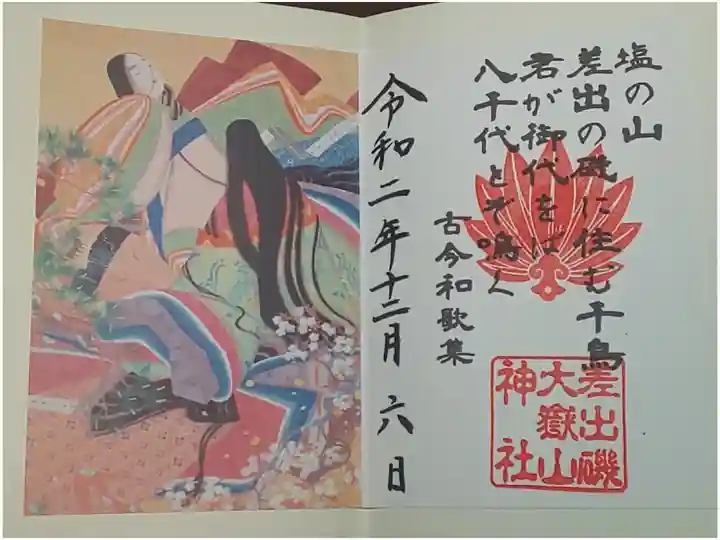 塩の山
差出の磯に住む千鳥
君が御代をば
八千代とぞ鳴く
古今和歌集
令和二年十二月六日
差出磯
大嶽山
神社